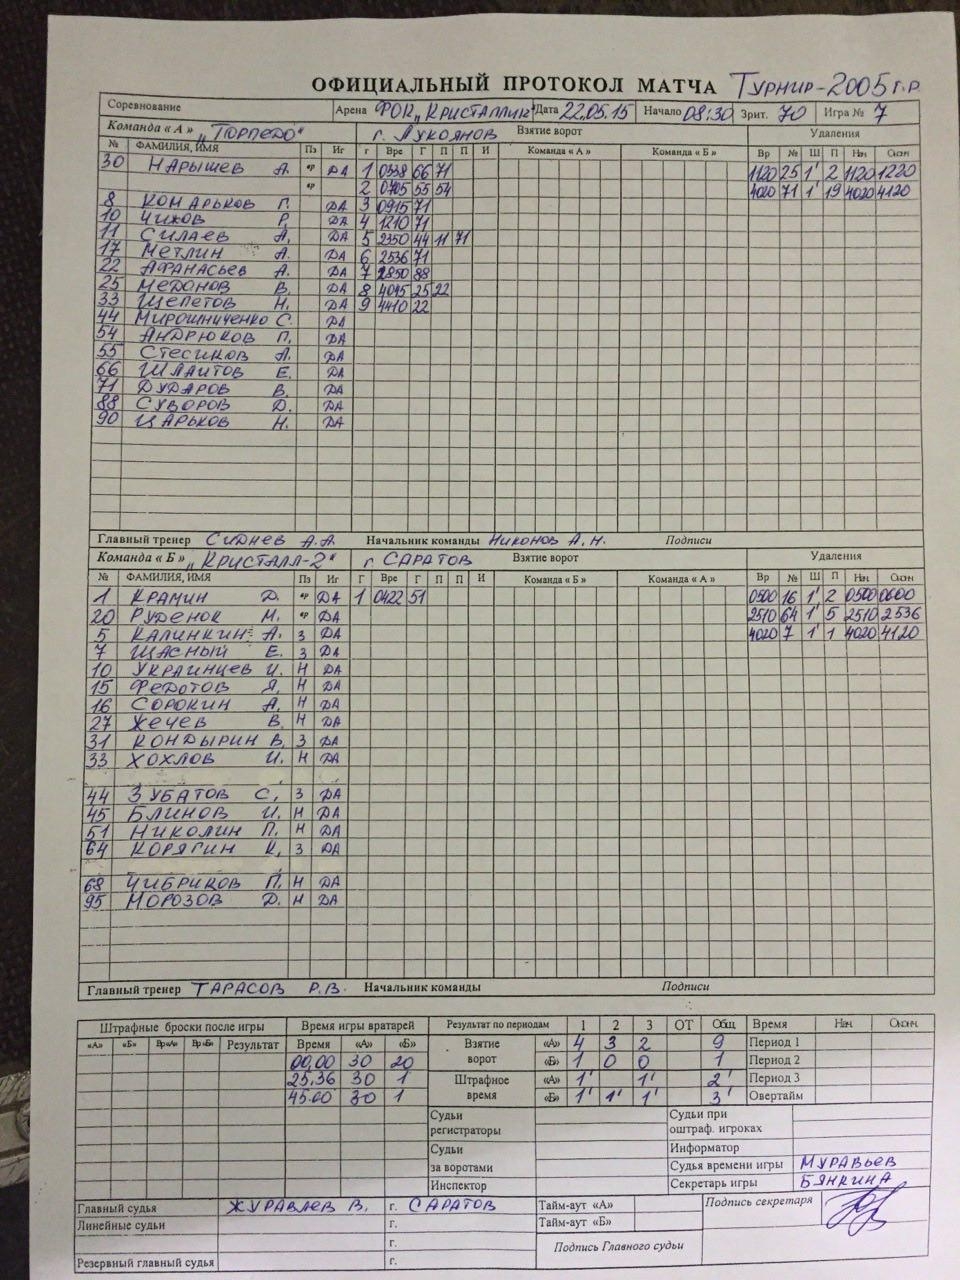 ОФИЦИАЛЬНЫЙ ПРОТОКОЛ МАТЧА Турнир-2005г.р.
Соревнование Арена ФОК "Кристаллик" Дата 22.05.15 Начало 08:30 Зрит. 70 Игра № 7
Команда « А » "Торпедо" г. Лукоянов Взятие ворот Удаления
№ ФАМИЛИЯ, ИМЯ Пз Иг г Вре Г П П И Команда « А » Команда « Б » Вр № Ш П Нач Окон
30 Нарышев А. вр ДА 1 0338 66 71 1120 25 1' 2 1120 1220
вр 2 0705 55 54 4020 71 1' 19 4020 4120
8 Комарьков Г. ДА 3 0915 71
10 Чихов Р. ДА 4 1210 71
11 Силаев А. ДА 5 2350 44 11 71
17 Метлин А. ДА 6 2536 71
22 Афанасьев А. ДА 7 2850 88
25 Меданов В. ДА 8 4045 25 22
33 Щепетов Н. ДА 9 4410 22
44 Мирошниченко С. ДА
54 Андрюков П. ДА
55 Стесиков А. ДА
66 Шлаитов Е. ДА
71 Дударов В. ДА
88 Суворов Д. ДА
90 Царьков Н. ДА
Главный тренер Сиднев А.А. Начальник команды Никонов А.Н. Подписи
Команда « Б » "Кристалл-2" г Саратов Взятие ворот Удаления
№ ФАМИЛИЯ, ИМЯ Пз Иг Г Вре Г П П И Команда « Б » Команда « А » Вр № Ш П Нач Окон
1 Крамин Д. вр ДА 1 0422 51 0500 16 1' 2 0500 0600
20 Руденок М. вр ДА 2510 64 1' 5 2510 2536
5 Калинкин А. З ДА 4020 7 1' 1 4020 4120
7 Щасный Е. З ДА
10 Украинцев И. Н ДА
15 Федотов Я. Н ДА
16 Сорокин А. Н ДА
27 Жечев В. Н ДА
31 Кондырин В. З ДА
33 Хохлов И. Н ДА
44 Зубатов С. З ДА
45 Блинов И. Н ДА
51 Николин П. Н ДА
64 Корягин К. З ДА
68 Чибриков П. Н ДА
95 Морозов Д. Н ДА
Главный тренер Тарасов Р.В. Начальник команды Подписи
Штрафные броски после игры Время игры вратарей Результат по периодам 1 2 3 ОТ Общ Время Нач Оконч
«А» «Б» Вр«А» Вр«Б» Результат Время «А» «Б» Взятие ворот «А» 4 3 2 9 Период 1
00.00 30 20 «Б» 1 0 0 1 Период 2
25.36 30 1 Штрафное время «А» 1' 1' 2' Период 3
45.00 30 1 «Б» 1' 1' 1' 3' Овертайм
Судьи регистраторы Судьи при оштраф. игроках
Судьи за воротами Информатор
Судья времени игры Муравьев
Инспектор Секретарь игры Бянкина
Главный судья Журавлев В. г. Саратов Тайм-аут «А» Подпись секретаря
Линейные судьи г. Тайм-аут «Б»
г. Подпись Главного судьи
Резервный главный судья г.